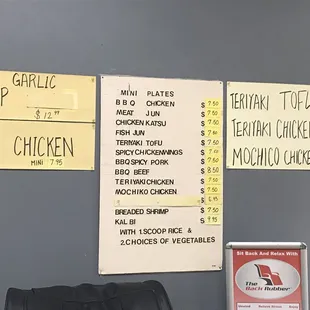 GARLIC
P
$12.99
CHICKEN
MINI 7.95
MINI PLATES
BBQ CHICKEN $7.50
MEAT JUN $7.50
CHICKEN KATSU $7.50
FISH JUN $7.50
TERIYAKI TOFU $7.50
SPICY CHICKEN WINGS $7.50
BBQ SPICY PORK $7.50
BBQ BEEF $8.50
TERIYAKI CHICKEN $7.50
MOCHIKO CHICKEN $6.95
BREADED SHRIMP $7.50
KAL BI $9.95
WITH 1.SCOOP RICE &
2.CHOICES OF VEGETABLES
TERIYAKI TOFU
TERIYAKI CHICKE
MOCHICO CHICKE
Sit Back And Relax With
The
Back Rubber